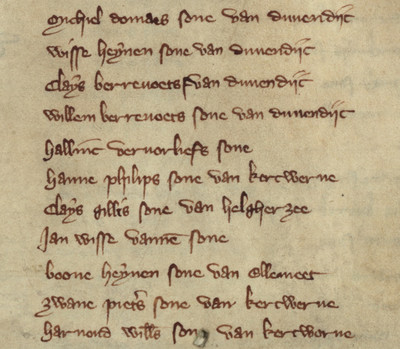 Michiel domaes sone van duvendijc
wisse heynen sone van duvendijc
Clays berrevoets s van duvendijc
willem berrevoets sone van duvendijc
hallinc vervorliefs sone
hanne philips sone van kercwerve
Clays gillis sone van helgherzee
Jan wisse vanne sone
boone heynen sone van Ellemeet
zwane pieters sone van kercwerve
harnoud wills sone van kercwerve